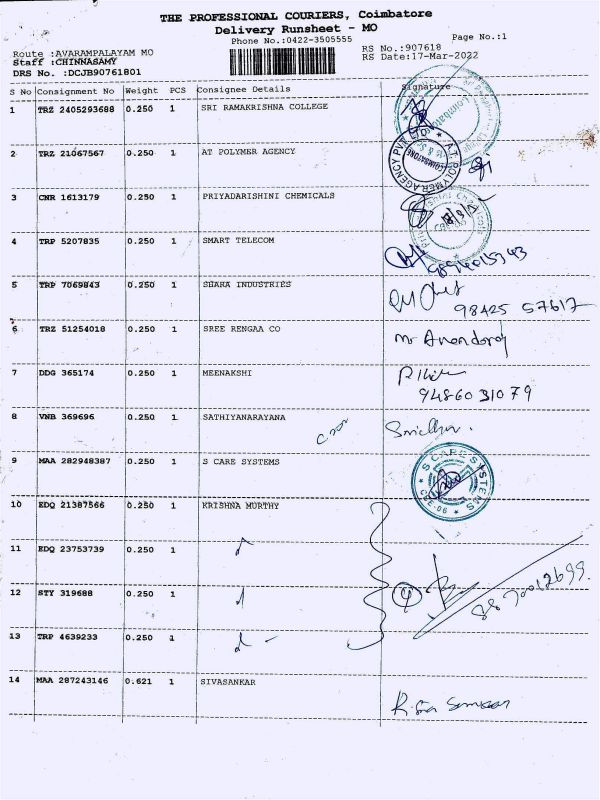 THE PROFESSIONAL COURIERS, Coimbatore
Delivery Runsheet - MO
Phone No.:0422-3505555
Page No.:1
Route :AVARAMPALAYAM MO
Staff :CHINNASAMY
DRS No. :DCJB90761801
RS No.:907618
RS Date:17-Mar-2022
S No Consignment No Weight PCS Consignee Details Signature
1 TRZ 2405293688 0.250 1 SRI RAMAKRISHNA COLLEGE
2 TRZ 21067567 0.250 1 AT POLYMER AGENCY
A.T. POLYMER AGENCY PVT LTD
COIMBATORE
3 CNR 1613179 0.250 1 PRIYADARISHINI CHEMICALS
4 TRP 5207835 0.250 1 SMART TELECOM
5 TRP 7069843 0.250 1 SHARA INDUSTRIES
98425 57617
6 TRZ 51254018 0.250 1 SREE RENGAA CO
Mr Anandaraj
7 DDG 365174 0.250 1 MEENAKSHI
9486031079
8 VNB 369696 0.250 1 SATHIYANARAYANA
9 MAA 282948387 0.250 1 S CARE SYSTEMS
S CARE SYSTEMS
CBE-06
10 EDQ 21387566 0.250 1 KRISHNA MURTHY
11 EDQ 23753739 0.250 1
12 STY 319688 0.250 1
4
13 TRP 4639233 0.250 1
14 MAA 287243146 0.621 1 SIVASANKAR